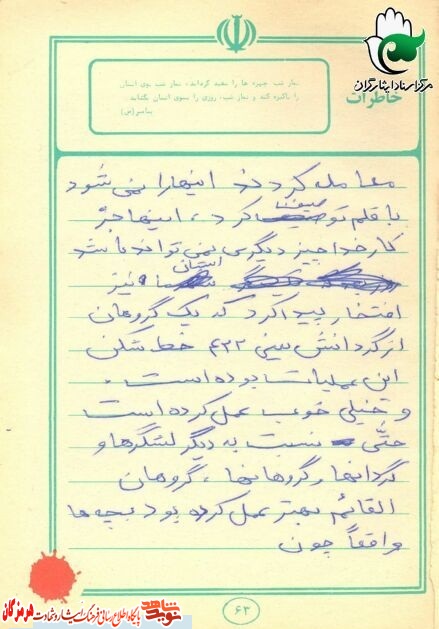 مرکز اسناد ایثارگران
خاطرات
نماز شب چهره ها را سفید گرداند، نماز شب بوی انسان
را پاکیزه کند و نماز شب، روزی را بسوی انسان بکشاند.
پیامبر (ص)
معامله کردند اینهارا نمی شود
با قلم توصیف کرد، اینها جز
کار خدا چیز دیگری نمی تواند باشد
استان ما نیز
افتخار پیدا کرد که یک گروهان
از گردانش یعنی ۴۲۲ خط شکن
این عملیات بوده است.
و خیلی خوب عمل کرده است
حتّی نسبت به دیگر لشگرها و
گردانها و گروهانها، گروهان
القائم بهتر عمل کرده بود بچه ها
واقعاً چون
۶۳
نوید شاهد پایگاه اطلاع رسانی فرهنگ ایثار و شهادت هرمزگان